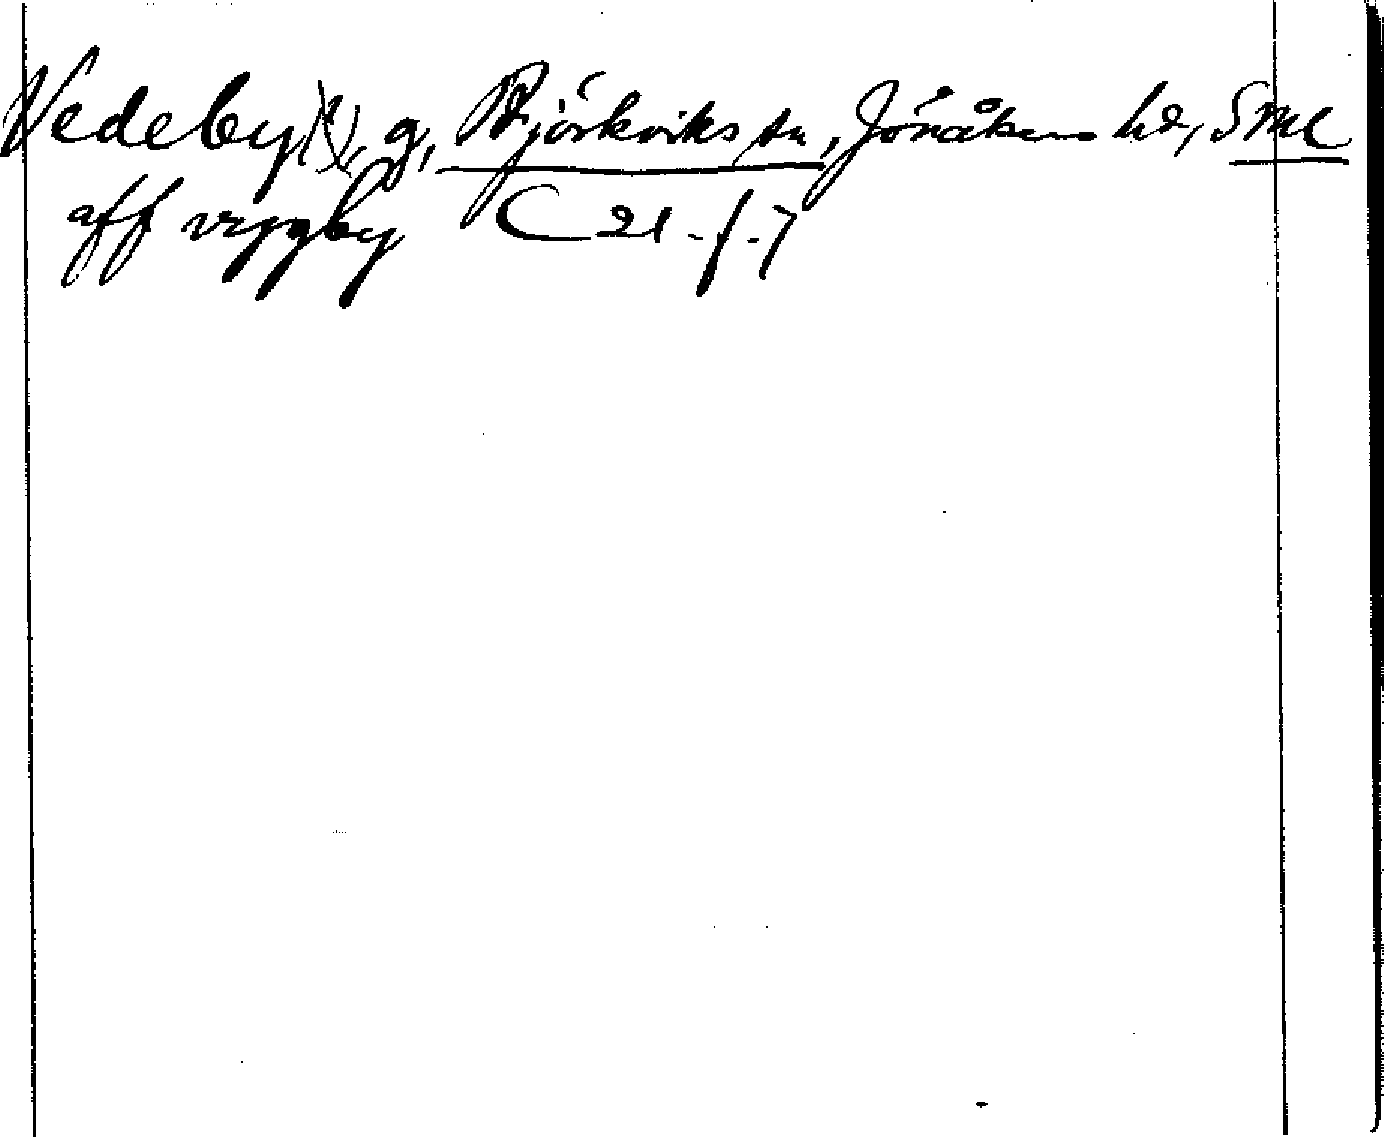 Vedeby(?), g, Björkviks sn, Jönåkers hd, Sml
aff vygby C 21 f. 7